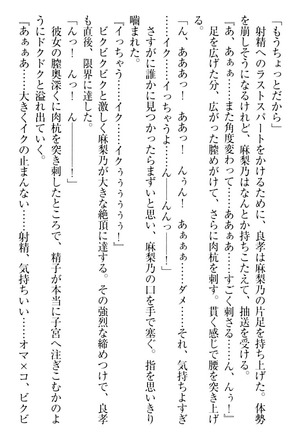 「もうちょっとだから」
　射精へのラストスパートをかけるために、良孝は麻梨乃の片足を持ち上げた。体勢
を崩しそうになるけれど、麻梨乃はなんとか持ちこたえて、抽送を受ける。
「あああっ……また角度変わって……ああぁ……すごく刺さる……ん、んぅ！」
　足を広げた分、広がった膣めがけて、さらに肉杭を刺す。貫く感じで腰を突き上げ
た。
「んっ！　あ、ああっ！　んぅん！　あぁぁぁ……ダメ……それ、気持ちいい
……イク……イっちゃうよ……ん――んんっ――！」
　さすがに誰かに見つかったらまずいと思い、麻梨乃の口を手で塞ぐ。指を思いきり
噛まれた。
『イっちゃう……イク……イクぅぅぅぅぅぅ！』
　ビクビクと激しく麻梨乃が大きな絶頂に達する。その強烈な締めつけで、良孝
も直後、限界に達した。
「んっ……くっ！」
　彼女の膣奥深くに肉杭を突き刺したところで、精子が本当に子宮へ注ぎこむかのよ
うにドクドクと溢れ出ていく。
『あぁぁあ……大きくイクの止まんない……射精、気持ちいい……オマ×コ、ビクビ